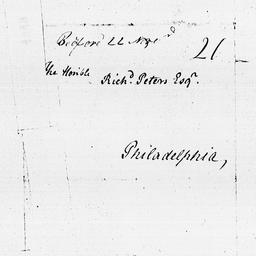 Bedford 22 Nov
21
The Honble
Richd. Peters Esqr.
Philadelphia,